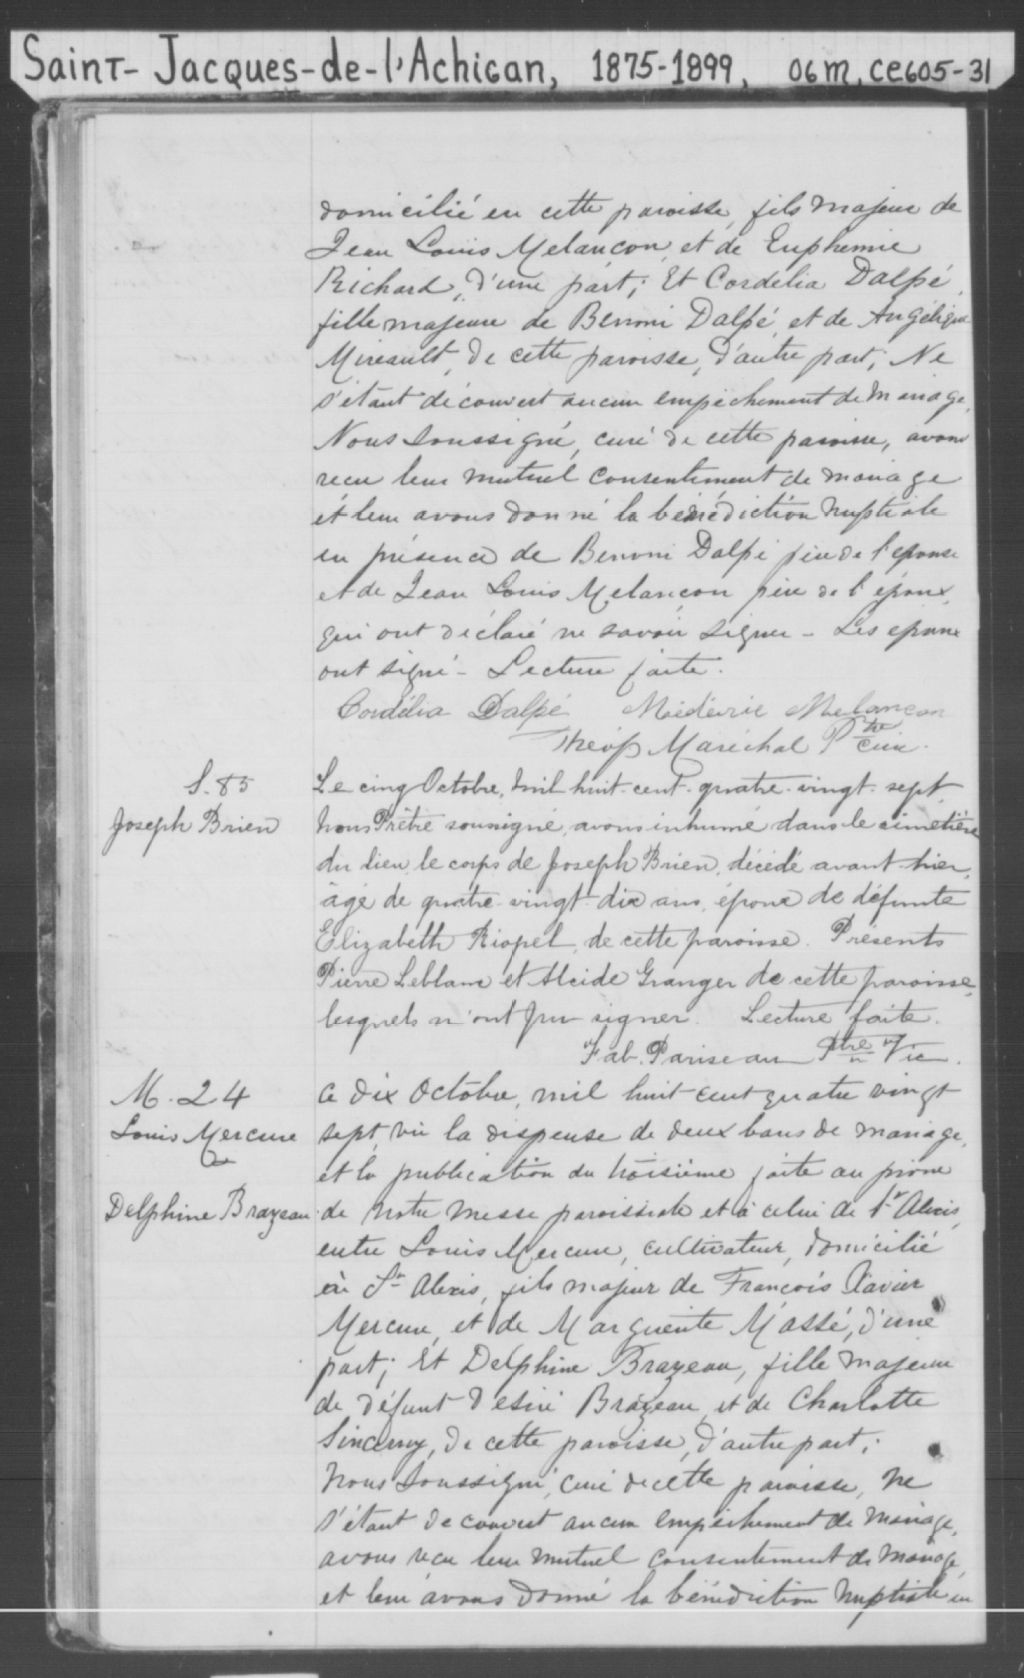 Saint-Jacques-de-l'Achigan, 1875-1899, 06m, CE605-31
domicilié en cette paroisse, fils majeur de
Jean Louis Melancon, et de Euphemie
Richard, d'une part; Et Cordelia Dalpé,
fille majeure de Benoni Dalpé, et de Angélique
Mireault, de cette paroisse, d'autre part; Ne
s'étant découvert aucun empêchement de mariage,
Nous soussigné, curé de cette paroisse, avons
recu leur mutuel consentement de mariage
et leur avons donné la bénédiction nuptiale
en présence de Benoni Dalpé père de l'épouse
et de Jean Louis Melancon père de l'époux,
qui ont déclaré ne savoir signer - Les époux
ont signé - Lecture faite.
Cordélia Dalpé Médéric Melancon
Théop Maréchal Ptre curé.
S. 85
Joseph Brien
Le cinq Octobre, mil huit-cent-quatre-vingt-sept,
Nous Prêtre soussigné, avons inhumé dans le cimetière
du lieu, le corps de Joseph Brien, décédé avant-hier,
âgé de quatre-vingt-dix ans, époux de défunte
Elizabeth Riopel, de cette paroisse. Présents
Pierre Leblanc et Alcide Granger de cette paroisse,
lesquels n'ont pu signer. Lecture faite.
Fab. Pariseau Ptre Vic.
M. 24
Louis Mercure
&
Delphine Brazeau
Ce dix Octobre, mil huit cent quatre vingt
sept, vu la dispense de deux bans de mariage,
et la publication du troisième faite au prône
de notre messe paroissiale et à celui de St Alexis,
entre Louis Mercure, cultivateur, domicilié
à St Alexis, fils majeur de François Xavier
Mercure, et de Marguerite Massé, d'une
part; Et Delphine Brazeau, fille majeure
de défunt Désiré Brazeau, et de Charlotte
Sincerny, de cette paroisse, d'autre part;
Nous soussigné, curé de cette paroisse, ne
s'étant découvert aucun empêchement de mariage,
avons recu leur mutuel consentement de mariage
et leur avons donné la bénédiction nuptiale en